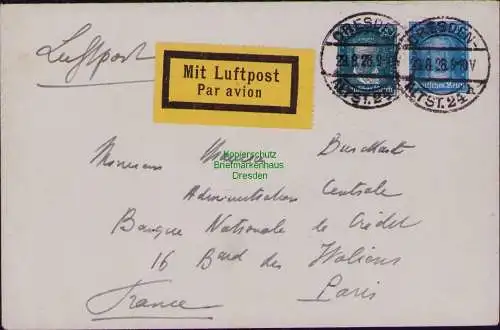 Luftpost
Mit Luftpost
Par avion
DRESDEN-
29.8.28.9-10V
ALTST.24
DRESDEN-
29.8.28.9-10V
ALTST.24
Deutsches Reich
Kopierschutz
Briefmarkenhaus
Dresden
Monsieur Burckhart
Administration Centrale
Banque Nationale de Crédit
16 Bard des Italiens
Paris
France